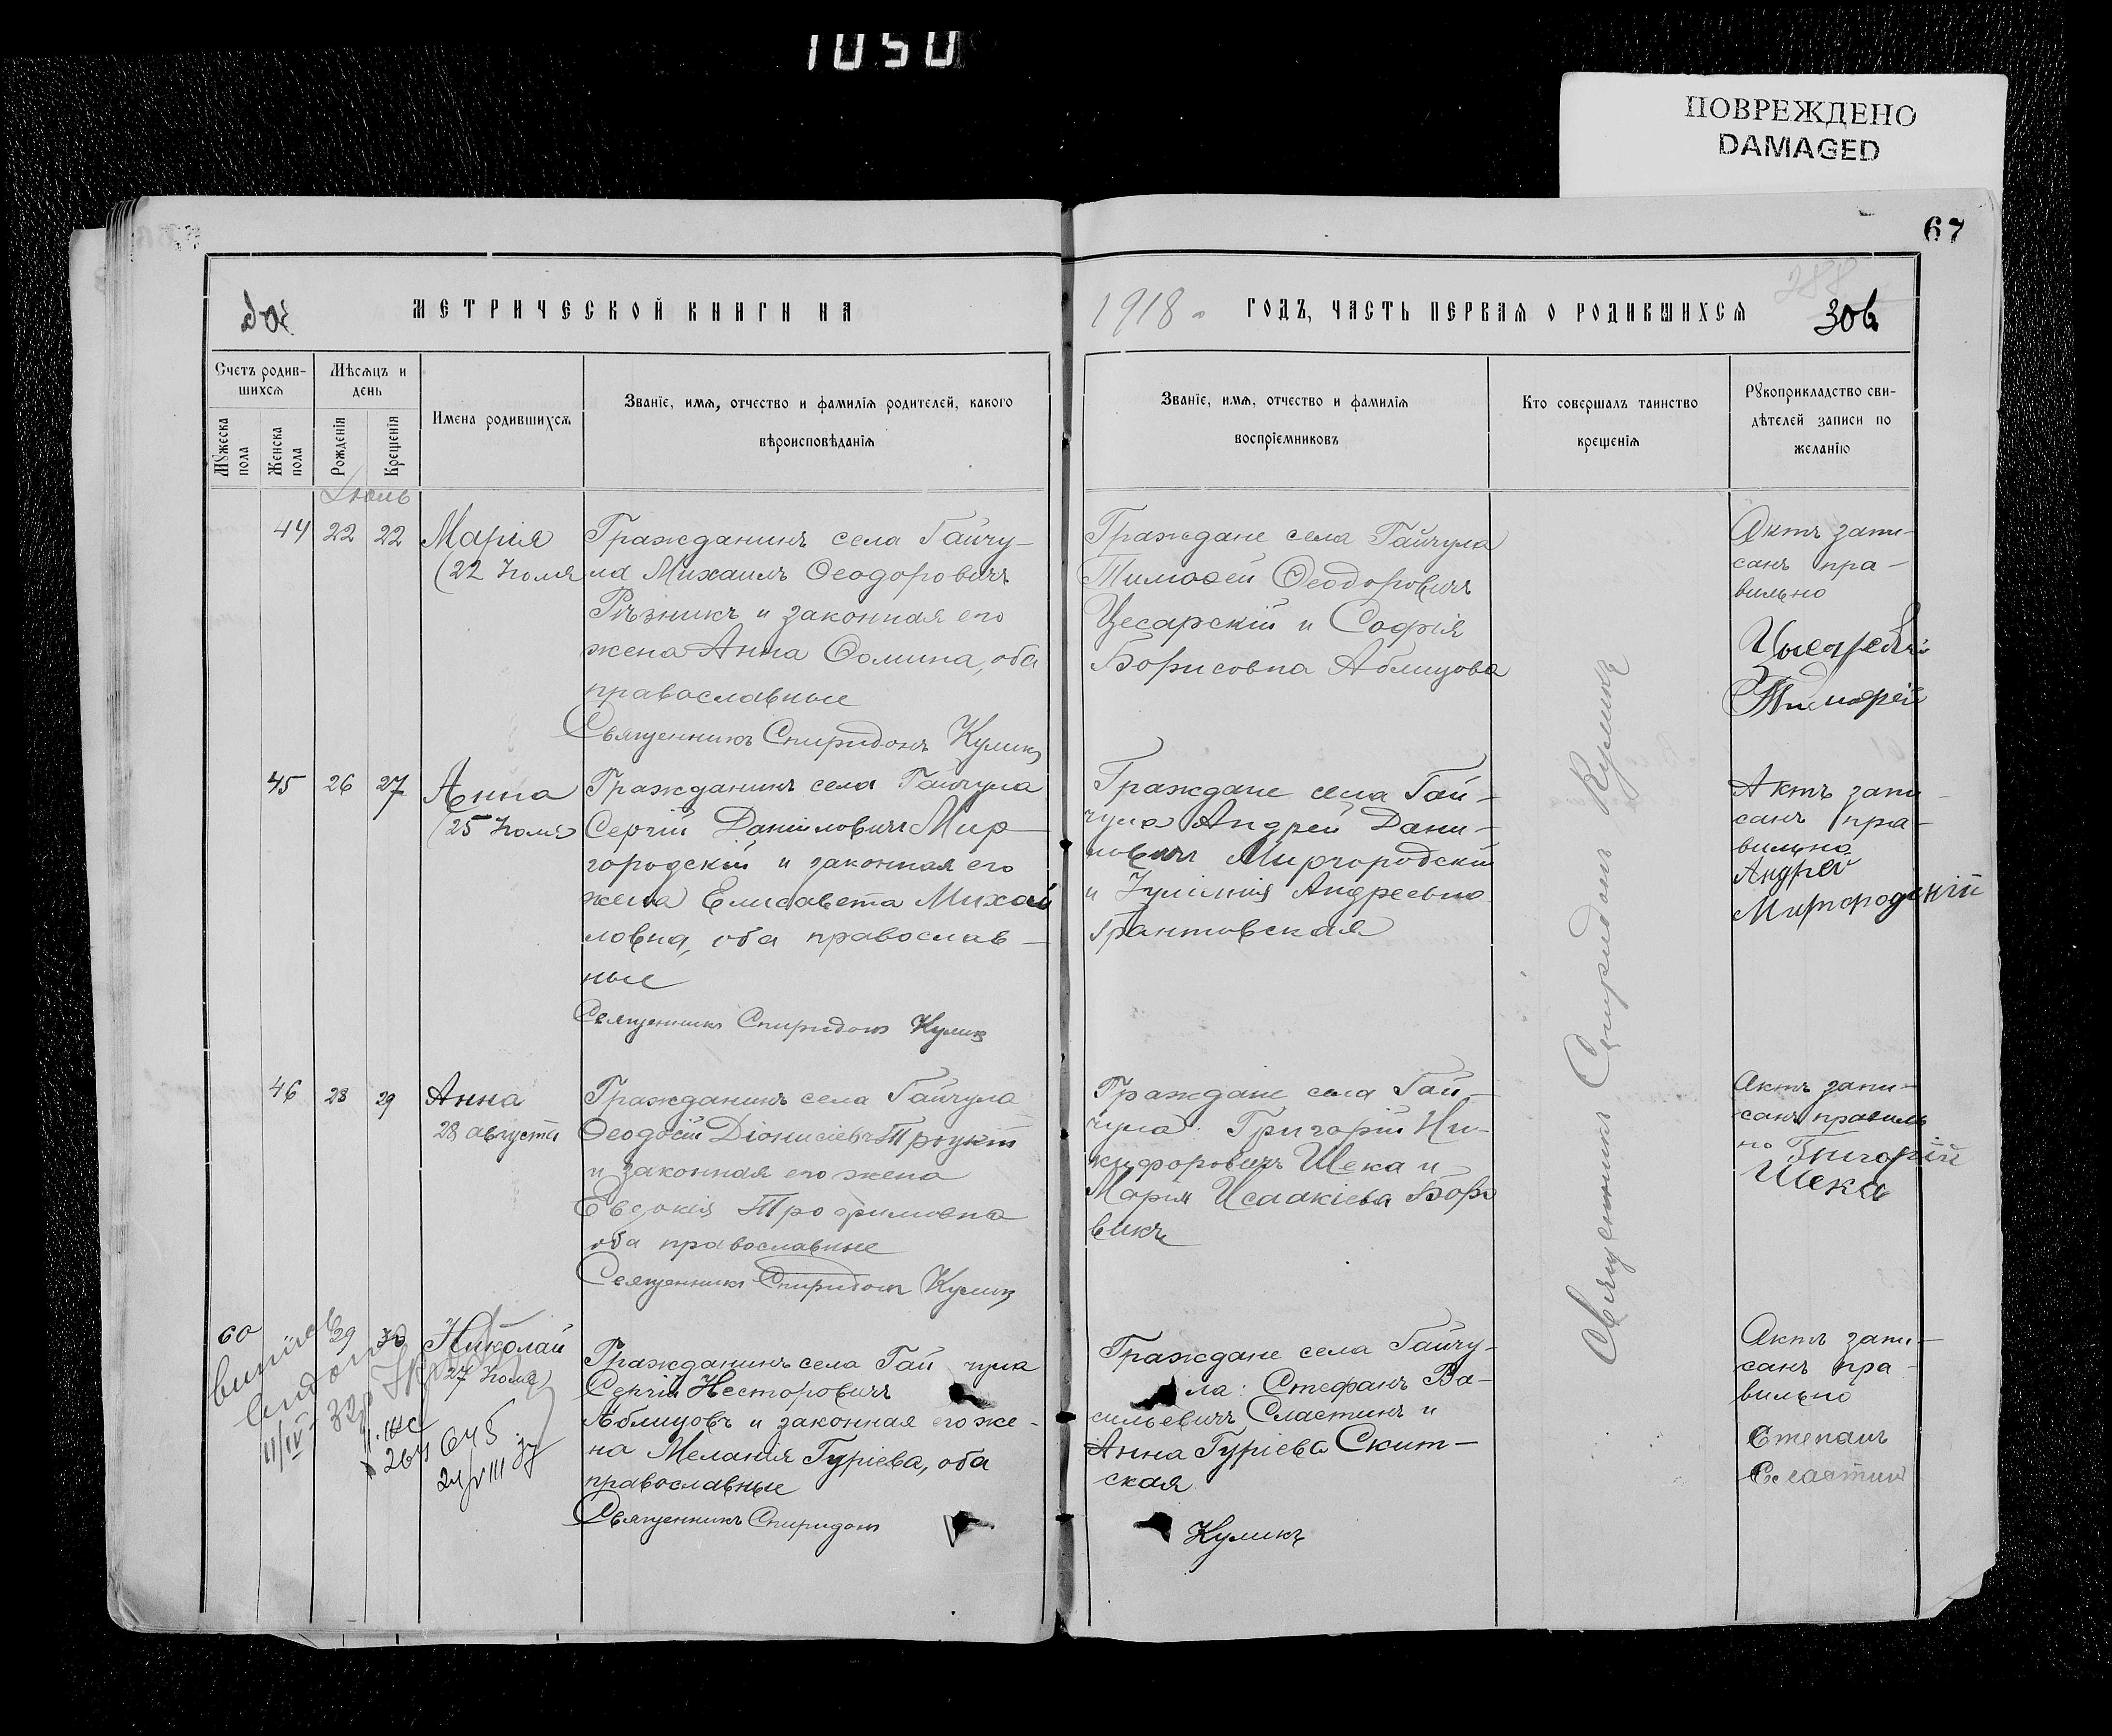 1050
ПОВРЕЖДЕНО
DAMAGED
67
МЕТРИЧЕСКОЙ КНИГИ НА
1918
ГОДЪ, ЧАСТЬ ПЕРВАЯ О РОДИВШИХСЯ
288
306
Счетъ родив-
шихся
Мѣсяцъ и
день
Имена родившихся
Званіе, имя, отчество и фамилія родителей, какого
вѣроисповѣданія
Званіе, имя, отчество и фамилія
воспріемниковъ
Кто совершалъ таинство
крещенія
Рукоприкладство сви-
дѣтелей записи по
желанію
Мужеска
пола
Женска
пола
Рожденія
Крещенія
Іюль
44 22 22 Марія
(22 Іюля
Гражданинъ села Гайчу-
ла Михаилъ Ѳеодоровичъ
Рѣзникъ и законная его
жена Анна Ѳомина, оба
православные
Священникъ Спиридонъ Куликъ
Граждане села Гайчула
Тимоѳей Ѳеодоровичъ
Цесарскій и Софія
Борисовна Аблицова
Актъ запи-
санъ пра-
вильно
45 26 27 Анна
(25 Іюля
Гражданинъ села Гайчула
Сергій Даніиловичъ Мир-
городскій и законная его
жена Елисавета Михай
ловна, оба православ-
ные
Священникъ Спиридонъ Куликъ
Граждане села Гай-
чула Андрей Дани-
ловичъ Миргородскій
и Іуліанія Андреевна
Грантовская
Актъ запи-
санъ пра-
вильно
Андрей
Миргородскій
46 28 29 Анна
28 августа
Гражданинъ села Гайчула
Ѳеодосій Діонисіевъ Троцкій
и законная его жена
Евдокія Трофимовна
оба православные
Священникъ Спиридонъ Куликъ
Граждане села Гай-
чула: Григорій Ни-
кифоровичъ Шека и
Марія Исаакіева Боро
викъ
Актъ запи-
санъ правиль
но Григорій
Шека
Священникъ Спиридонъ Куликъ
60 29 30 Николай
27 Іюля
11/IV
264 645
24/VIII 37
Гражданинъ села Гай чула
Сергій Несторовичъ
Аблицовъ и законная его же-
на Меланія Гуріева, оба
православные
Священникъ Спиридонъ
Граждане села Гайчу-
ла: Стефанъ Ва-
сильевичъ Сластинъ и
Анна Гуріева Скит-
ская
Куликъ
Актъ запи-
санъ пра-
вильно
Степанъ
Сластин